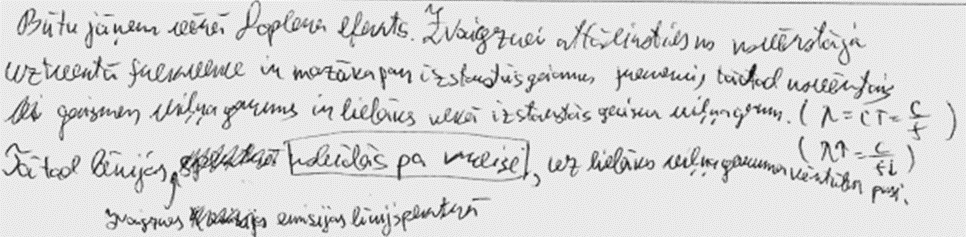 Būtu jāņem vērā Doplera efekts. Zvaigznei attālinoties no novērotāja
uztvertā frekvence ir mazāka par izstarotās gaismas frekvenci, tātad novērotais
gaismas viļņa garums ir lielāks nekā izstarotās gaismas viļņa garums. (λ = cT = c/f)
(λ↑ = c/f↓)
Tātad līnijas nobīdās pa labi, uz lielāka viļņa garuma vērtību pusi.
zvaigznes emisijas līnijspektrā